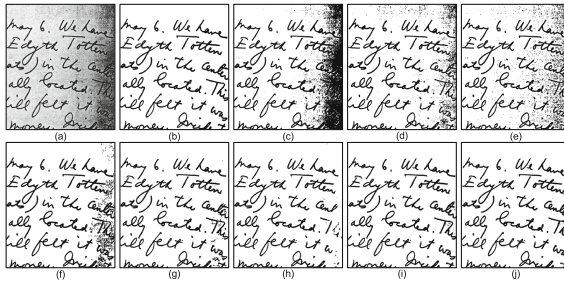 may 6. We have
Edyth Totten
ate) in the center
ally located. This
ill felt it was
money.
(a)
may 6. We have
Edyth Totten
ate) in the center
ally located. This
ill felt it was
money.
(b)
may 6. We have
Edyth Totten
ate) in the
ally located.
ill felt it
money.
(c)
may 6. We have
Edyth Totten
ate) in the center
ally located. This
ill felt it was
money.
(d)
may 6. We have
Edyth Totten
ate) in the center
ally located. This
ill felt it was
money.
(e)
may 6. We have
Edyth Totten
ate) in the center
ally located. This
ill felt it was
money.
(f)
may 6. We have
Edyth Totten
ate) in the center
ally located. This
ill felt it was
money.
(g)
may 6. We have
Edyth Totten
ate) in the
ally located.
ill felt it
money.
(h)
may 6. We have
Edyth Totten
ate) in the center
ally located. This
ill felt it was
money.
(i)
may 6. We have
Edyth Totten
ate) in the center
ally located. This
ill felt it was
money.
(j)